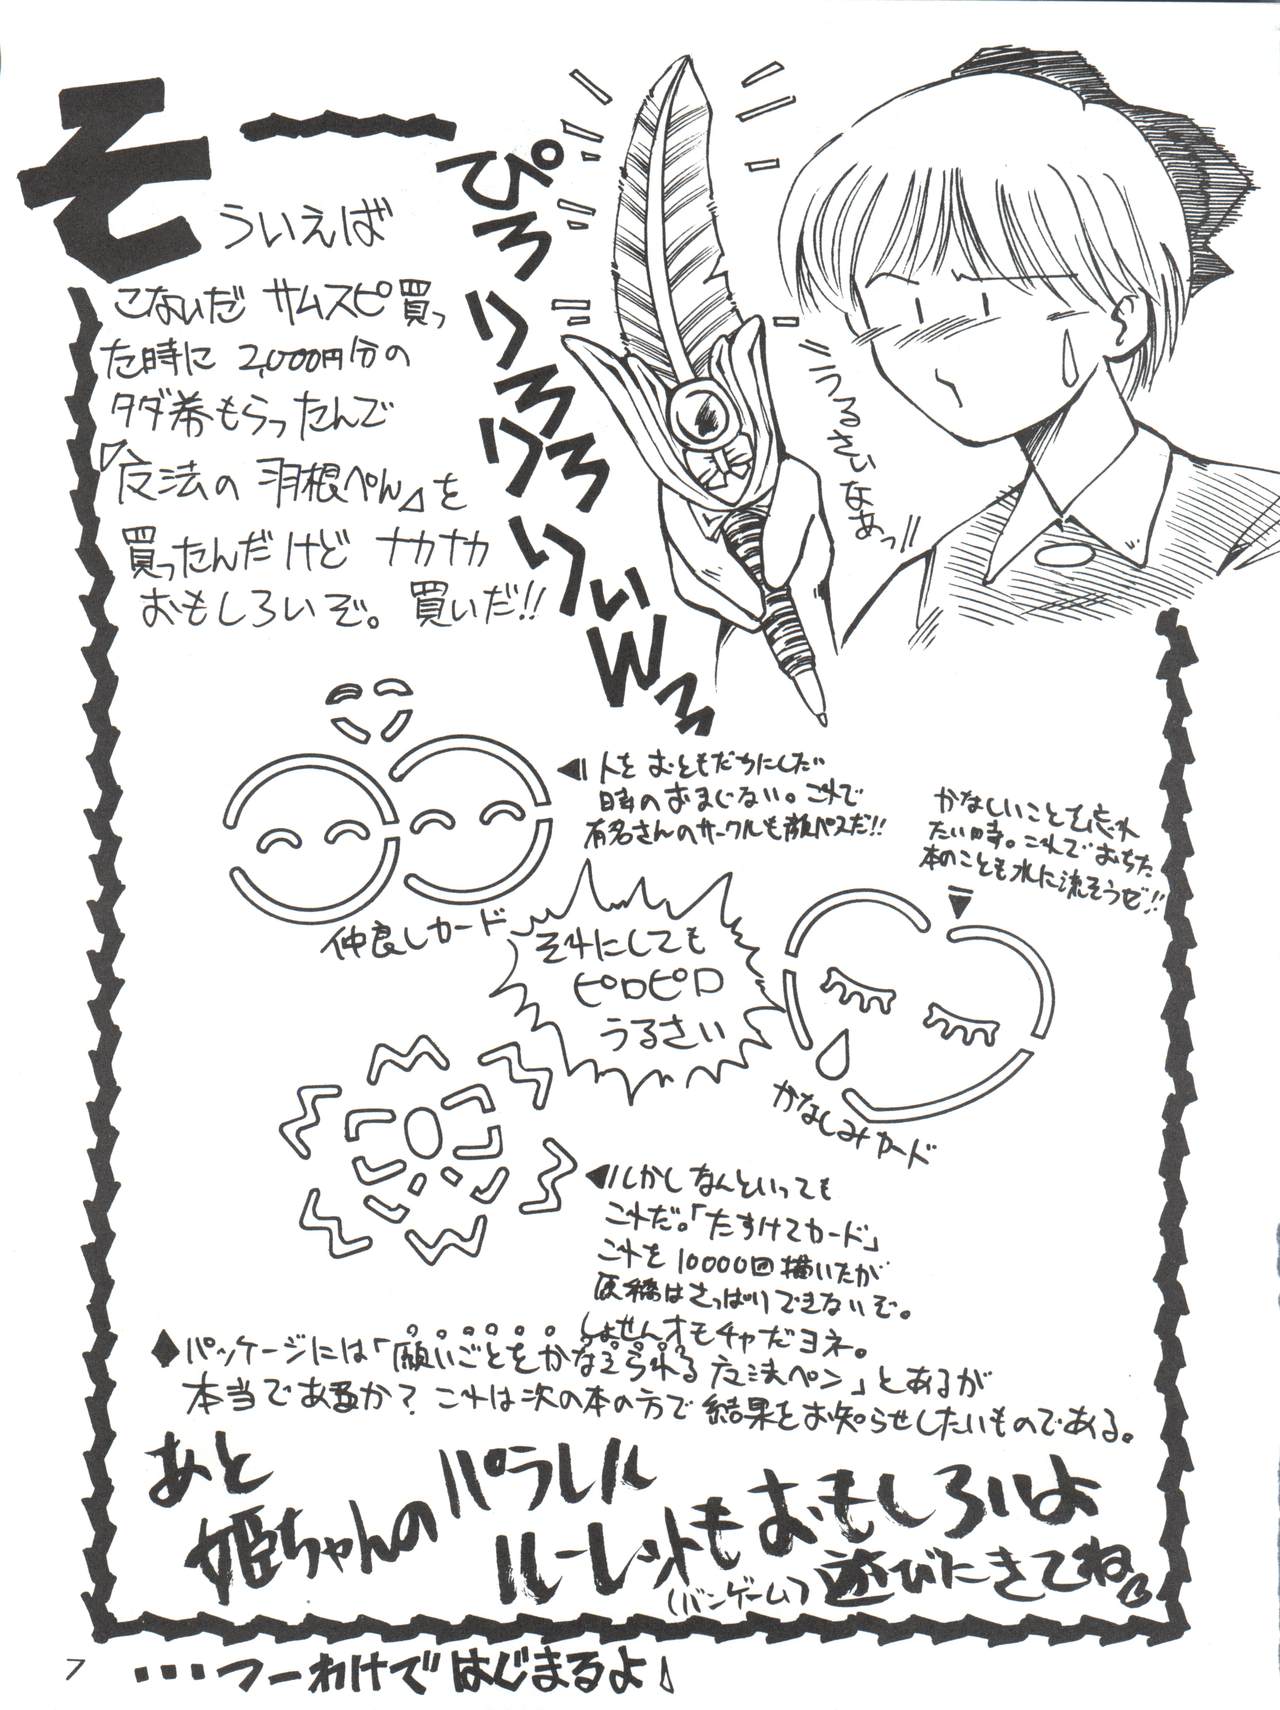 そーういえば
こないだ サムスピ買っ
た時に 2,000円分の
タダ券もらったんで
『魔法の羽根ぺん』を
買ったんだけど ナカナカ
おもしろいぞ。買いだ!!
ぴろりろりろりろりぃw
うるさいなあっ
人をおともだちにしたい
時のおまじない。これで
有名さんのサークルも顔パスだ!!
仲良しカード
かなしいことを忘れ
たい時。これでおちた
本のことも水に流そうぜ!!
かなしみカード
それにしても
ピロピロ
うるさい
しかしなんといっても
これだ。「たすけてカード」
これを10000回描いたが
原稿はさっぱりできないぞ。
しょせんオモチャだヨネ。
◆パッケージには「願いごとをかなえられる魔法ペン」とあるが
本当であるか？これは次の本の方で結果をお知らせしたいものである。
あと
姫ちゃんのパラレル
ルーレットもおもしろいよ
(バンゲーム) 遊びにきてね
・・・つーわけではじまるよ♪
7